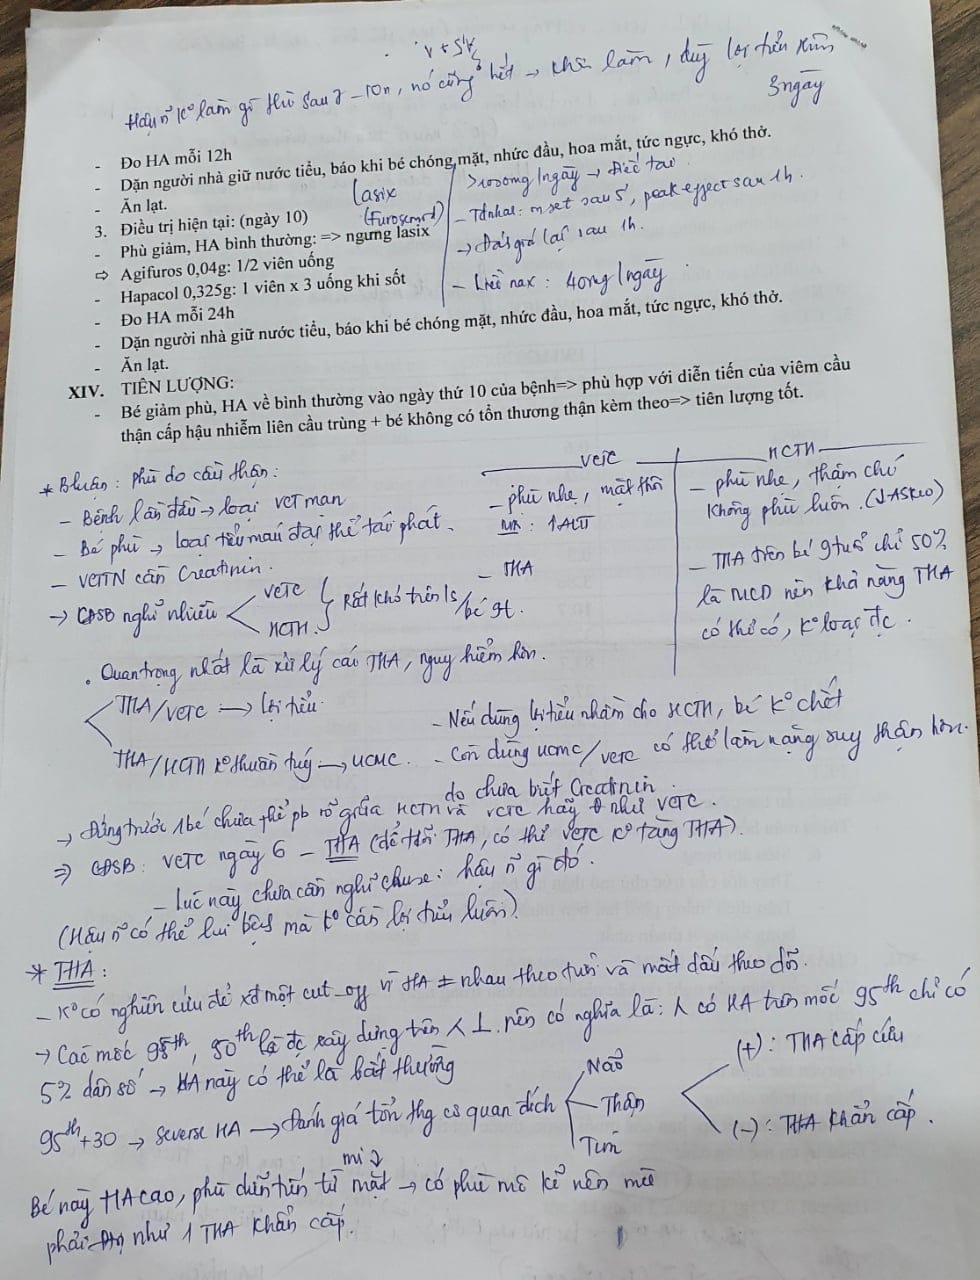 Hậu n̄ K° làm gì thì sau 7-10n, nó cũng hết → khỏi làm, dùng lợi tiểu
3 ngày
- Đo HA mỗi 12h
- Dặn người nhà giữ nước tiểu, báo khi bé chóng mặt, nhức đầu, hoa mắt, tức ngực, khó thở.
- Ăn lạt.
3. Điều trị hiện tại: (ngày 10)
Phù giảm, HA bình thường: => ngưng lasix
⇨ Agifuros 0,04g: 1/2 viên uống
- Hapacol 0,325g: 1 viên x 3 uống khi sốt
- Đo HA mỗi 24h
- Dặn người nhà giữ nước tiểu, báo khi bé chóng mặt, nhức đầu, hoa mắt, tức ngực, khó thở.
- Ăn lạt.
Lasix
(Furosemid)
/ngày → điếc tai
onset sau 5', peak effect sau 1h.
→ Đánh giá lại sau 1h.
- Liều max: 40mg/ngày
XIV. TIÊN LƯỢNG:
- Bé giảm phù, HA về bình thường vào ngày thứ 10 của bệnh=> phù hợp với diễn tiến của viêm cầu
thận cấp hậu nhiễm liên cầu trùng + bé không có tổn thương thận kèm theo=> tiên lượng tốt.
* Bluận: phù do cầu thận:
- Bệnh lần đầu → loại VCT mạn
- Bé phù → loại tiểu máu đại thể tái phát.
- VCTTN cần Creatinin.
→ CĐSB nghĩ nhiều < VCTC
HCTH } Rất khó trên ls/bé 9t.
VCTC
- phù nhẹ, mặt
- THA
HCTH
- phù nhẹ, thậm chí
không phù luôn.
- THA trên bé 9 tuổi chỉ 50%
là MCD nên khả năng THA
có thể có, K° loại đc.
. Quan trọng nhất là xử lý cái THA, nguy hiểm hơn.
THA/VCTC → lợi tiểu
THA/HCTH K° thuần túy → UCMC.
- Nếu dùng lợi tiểu nhầm cho HCTH, bé K° chết
- Còn dùng UCMC/VCTC có thể làm nặng suy thận hơn.
do chưa biết Creatinin
→ Đứng trước 1 bé chưa thể pb rõ giữa HCTH và VCTC hãy θ như VCTC.
⇒ CĐSB: VCTC ngày 6 - THA (để đó THA, có thể VCTC K° tăng THA).
- lúc này chưa cần nghĩ cause: hậu n̄ gì đó.
(Hậu n̄ có thể lui bệnh mà K° cần lợi tiểu luôn).
* THA:
- K° có nghiên cứu để xđ một cut-off vì HA ≠ nhau theo tuổi và mất dấu theo dõi.
→ Các mốc 95th, 50th là đc xây dựng trên nên có nghĩa là: có HA trên mốc 95th chỉ có
5% dân số → HA này có thể là bất thường
95th+30 → severe HA → đánh giá tổn thg cơ quan đích
Não
Thận
Tim
(+): THA cấp cứu
(-): THA khẩn cấp.
mi↓
Bé này HA cao, phù diễn tiến từ mặt → có phù mô kẽ nên
phải như 1 THA khẩn cấp.